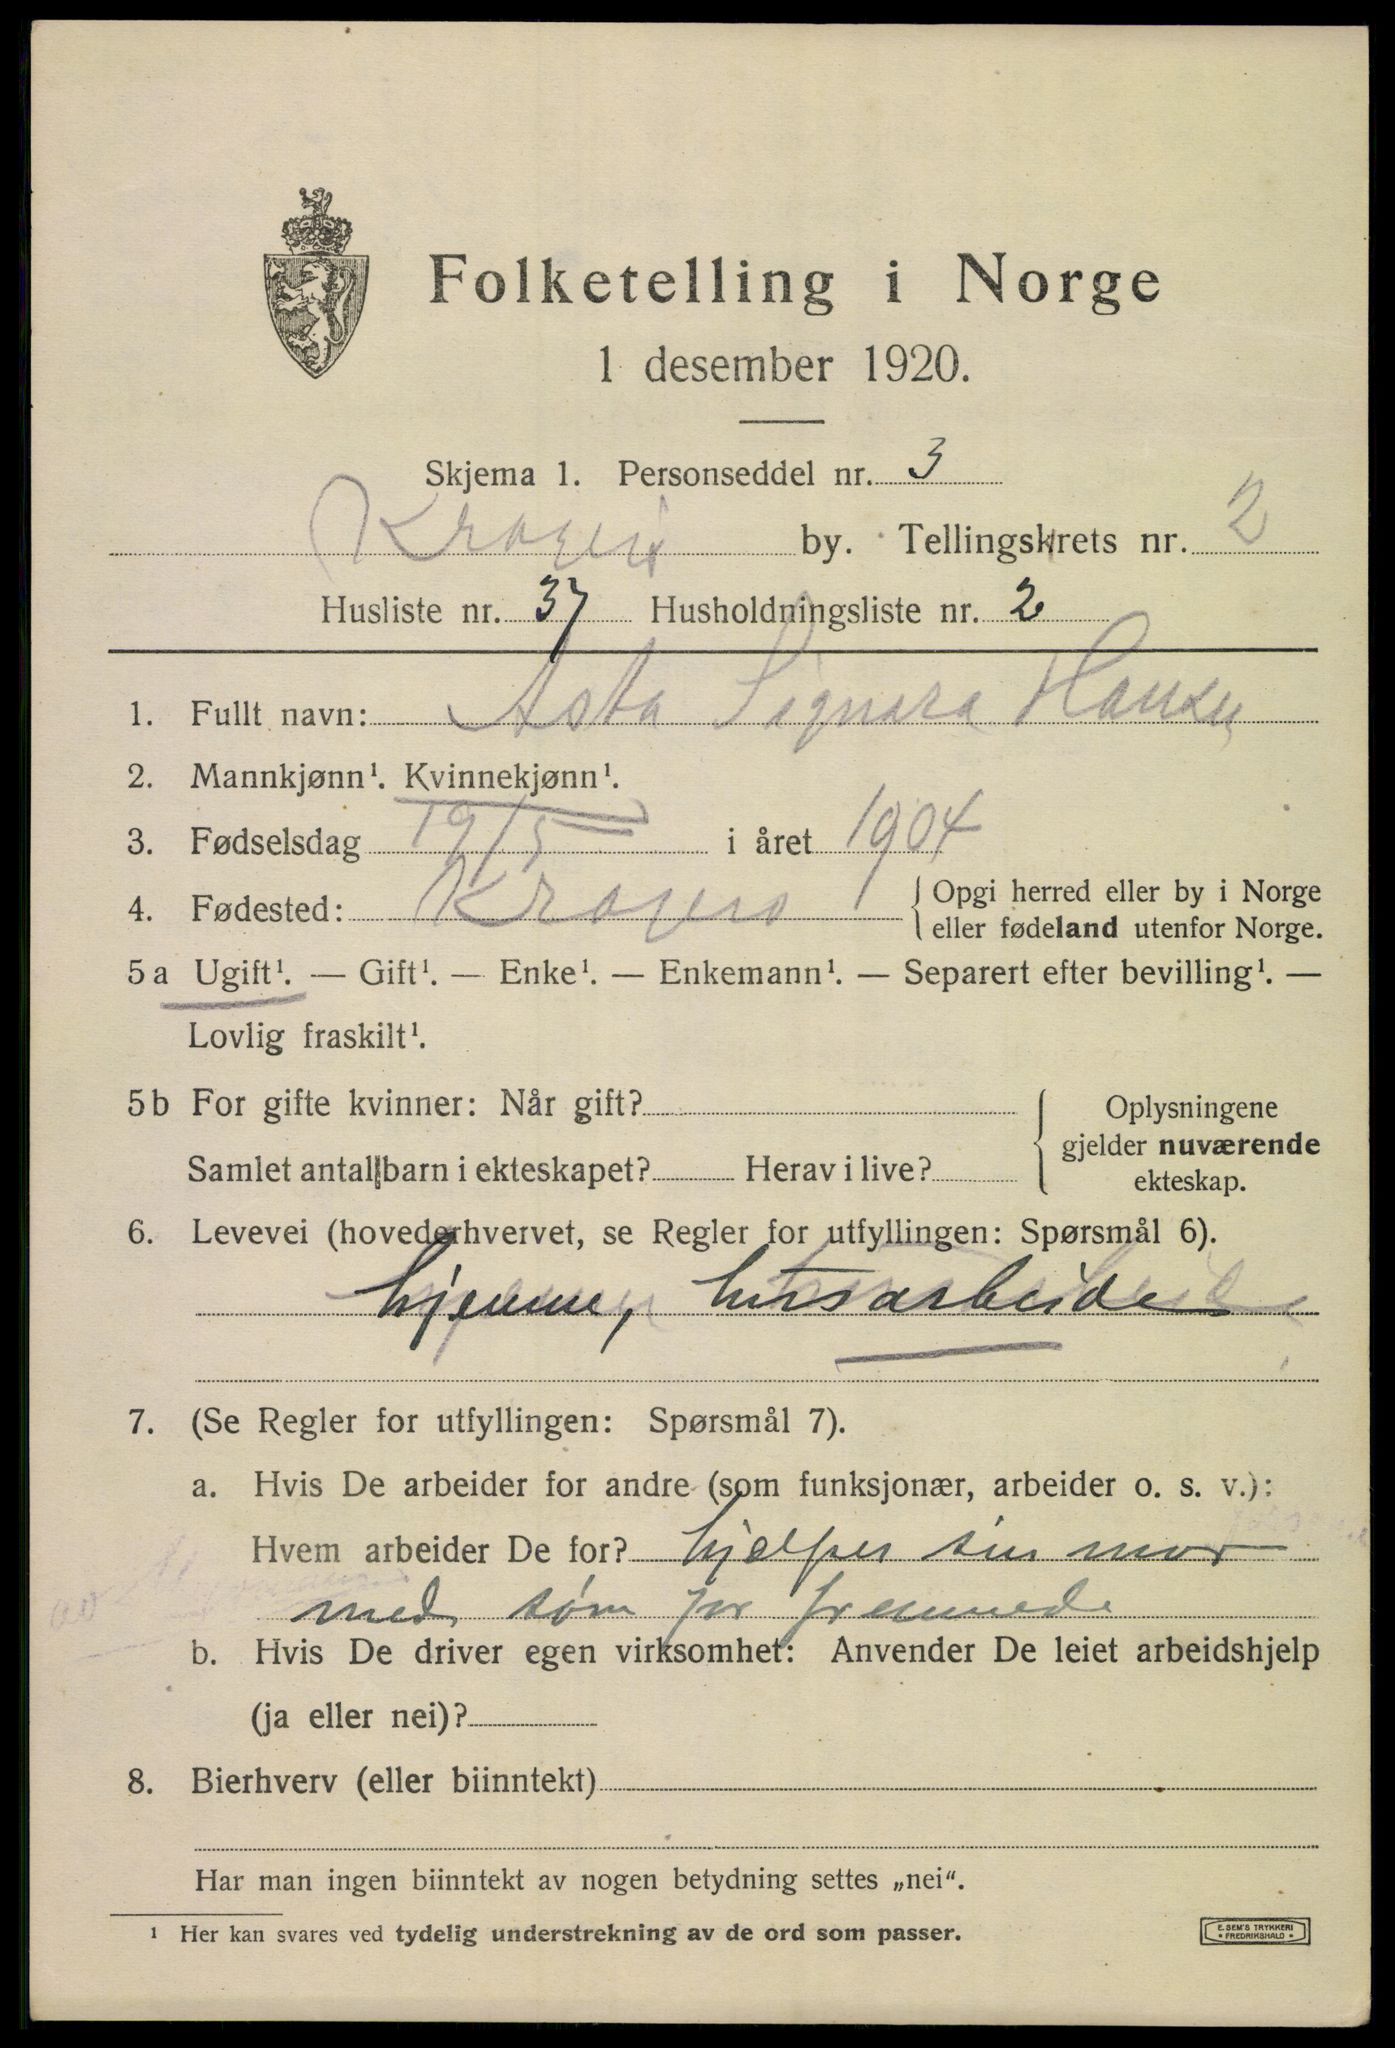 Folketelling i Norge
1 desember 1920.
Skjema 1. Personseddel nr. 3
Kragerø by. Tellingskrets nr. 2
Husliste nr. 37 Husholdningsliste nr. 2
1. Fullt navn: Asta Signora Hansen
2. Mannkjønn¹. Kvinnekjønn¹.
3. Fødselsdag 19/5 i året 1904
4. Fødested: Kragerø { Opgi herred eller by i Norge
eller fødeland utenfor Norge.
5a Ugift¹. — Gift¹. — Enke¹. — Enkemann¹. — Separert efter bevilling¹. —
Lovlig fraskilt¹.
5b For gifte kvinner: Når gift?
Samlet antall barn i ekteskapet? Herav i live?
{ Oplysningene
gjelder nuværende
ekteskap.
6. Levevei (hovederhvervet, se Regler for utfyllingen: Spørsmål 6).
hjemme, husarbeide
7. (Se Regler for utfyllingen: Spørsmål 7).
a. Hvis De arbeider for andre (som funksjonær, arbeider o. s. v.):
Hvem arbeider De for? hjelper sin mor
med søm for fremmede
b. Hvis De driver egen virksomhet: Anvender De leiet arbeidshjelp
(ja eller nei)?
8. Bierhverv (eller biinntekt)
Har man ingen biinntekt av nogen betydning settes „nei“.
¹ Her kan svares ved tydelig understrekning av de ord som passer.
E. SEM'S TRYKKERI
FREDRIKSHALD